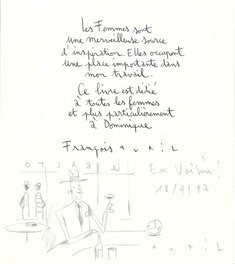 Les Femmes sont
une merveilleuse source
d'inspiration. Elles occupent
une place importante dans
mon travail.
Ce livre est dédié
à toutes les femmes
et plus particulièrement
à Dominique
François AVRIL
En Voisin!
18/4/97
AVRIL